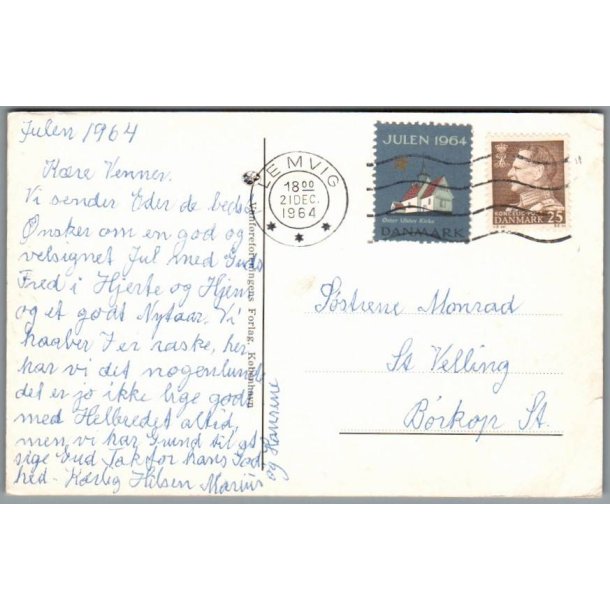 Julen 1964
Kære Venner.
Vi sender Eder de bedste
Ønsker om en god og
velsignet Jul med Guds
Fred i Hjerte og Hjem
og et godt Nytaar. Vi
haaber I er raske, her
har vi det nogenlunde
det er jo ikke lige godt
med Helbredet altid,
men vi har Grund til at
sige Gud Tak for hans God
hed - Kærlig Hilsen Marius
og Hansine
Ungdomsforeningens Forlag, København
LEMVIG
18 00
21 DEC.
1964
JULEN 1964
Øster Ulslev Kirke
DANMARK
KONGELIG POST
DANMARK 25
Søstrene Monrad
St Velling
Børkop St.